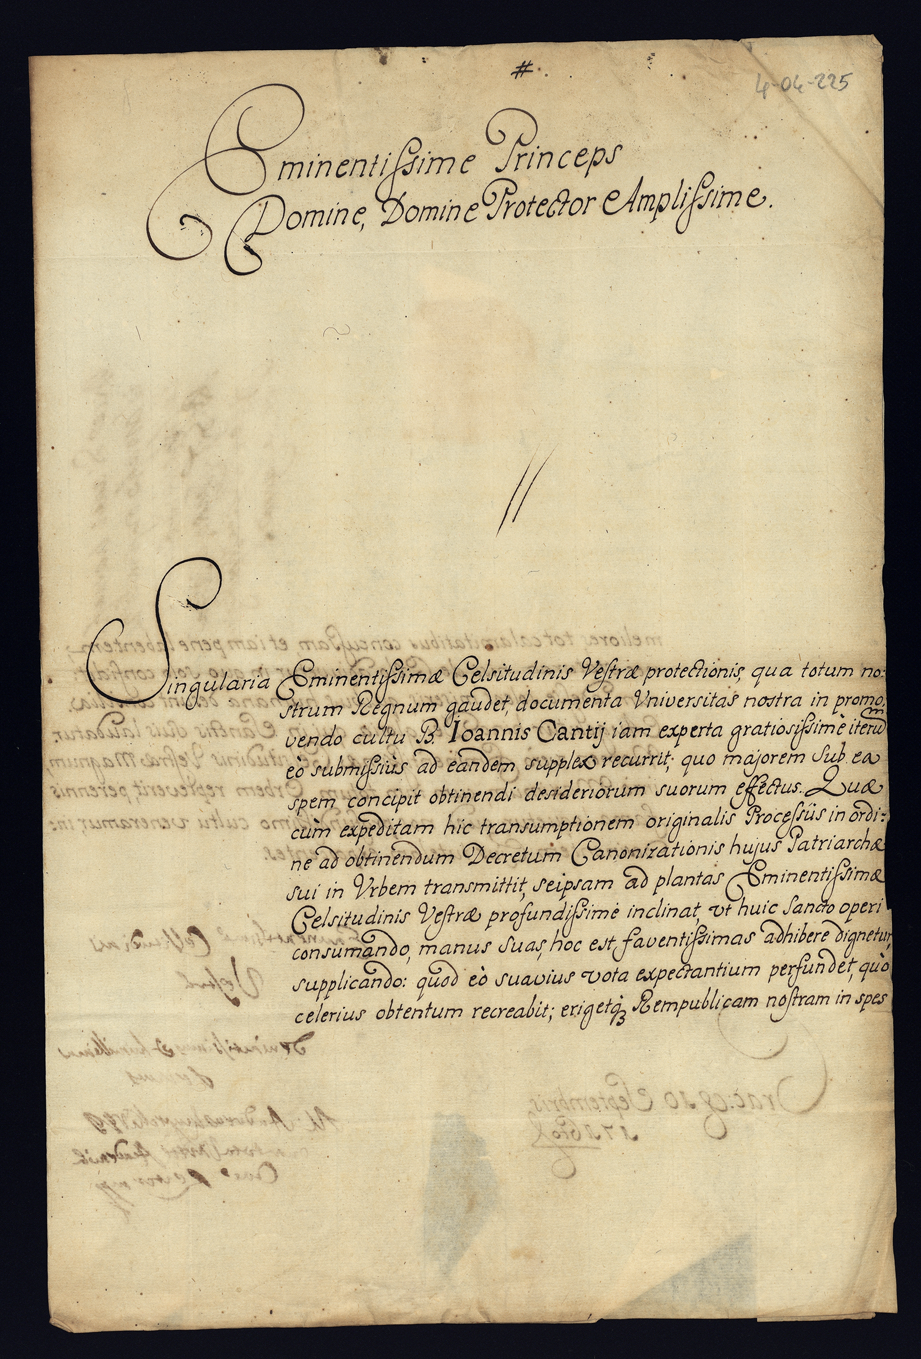 #
4-04-225
Eminentissime Princeps
Domine, Domine Protector Amplissime.
Singularia Eminentissimæ Celsitudinis Vestræ protectionis, qua totum no:
strum Regnum gaudet, documenta Vniversitas nostra in promo:
vendo cultu B. Ioannis Cantij iam experta gratiosissimè iterum
eò submissiùs ad eandem supplex recurrit; quo majorem sub ea
spem concipit obtinendi desideriorum suorum effectus. Quæ
cùm expeditam hic transumptionem originalis Processûs in ordi:
ne ad obtinendum Decretum Canonizationis hujus Patriarchæ
sui in Vrbem transmittit, seipsam ad plantas Eminentissimæ
Celsitudinis Vestræ profundissimè inclinat, vt huic sancto operi
consumando, manus suas, hoc est, faventissimas adhibere dignetur,
supplicando: quòd eò suavius vota expectantium perfundet, quò
celerius obtentum recreabit; erigetq3 Rempublicam nostram in spes